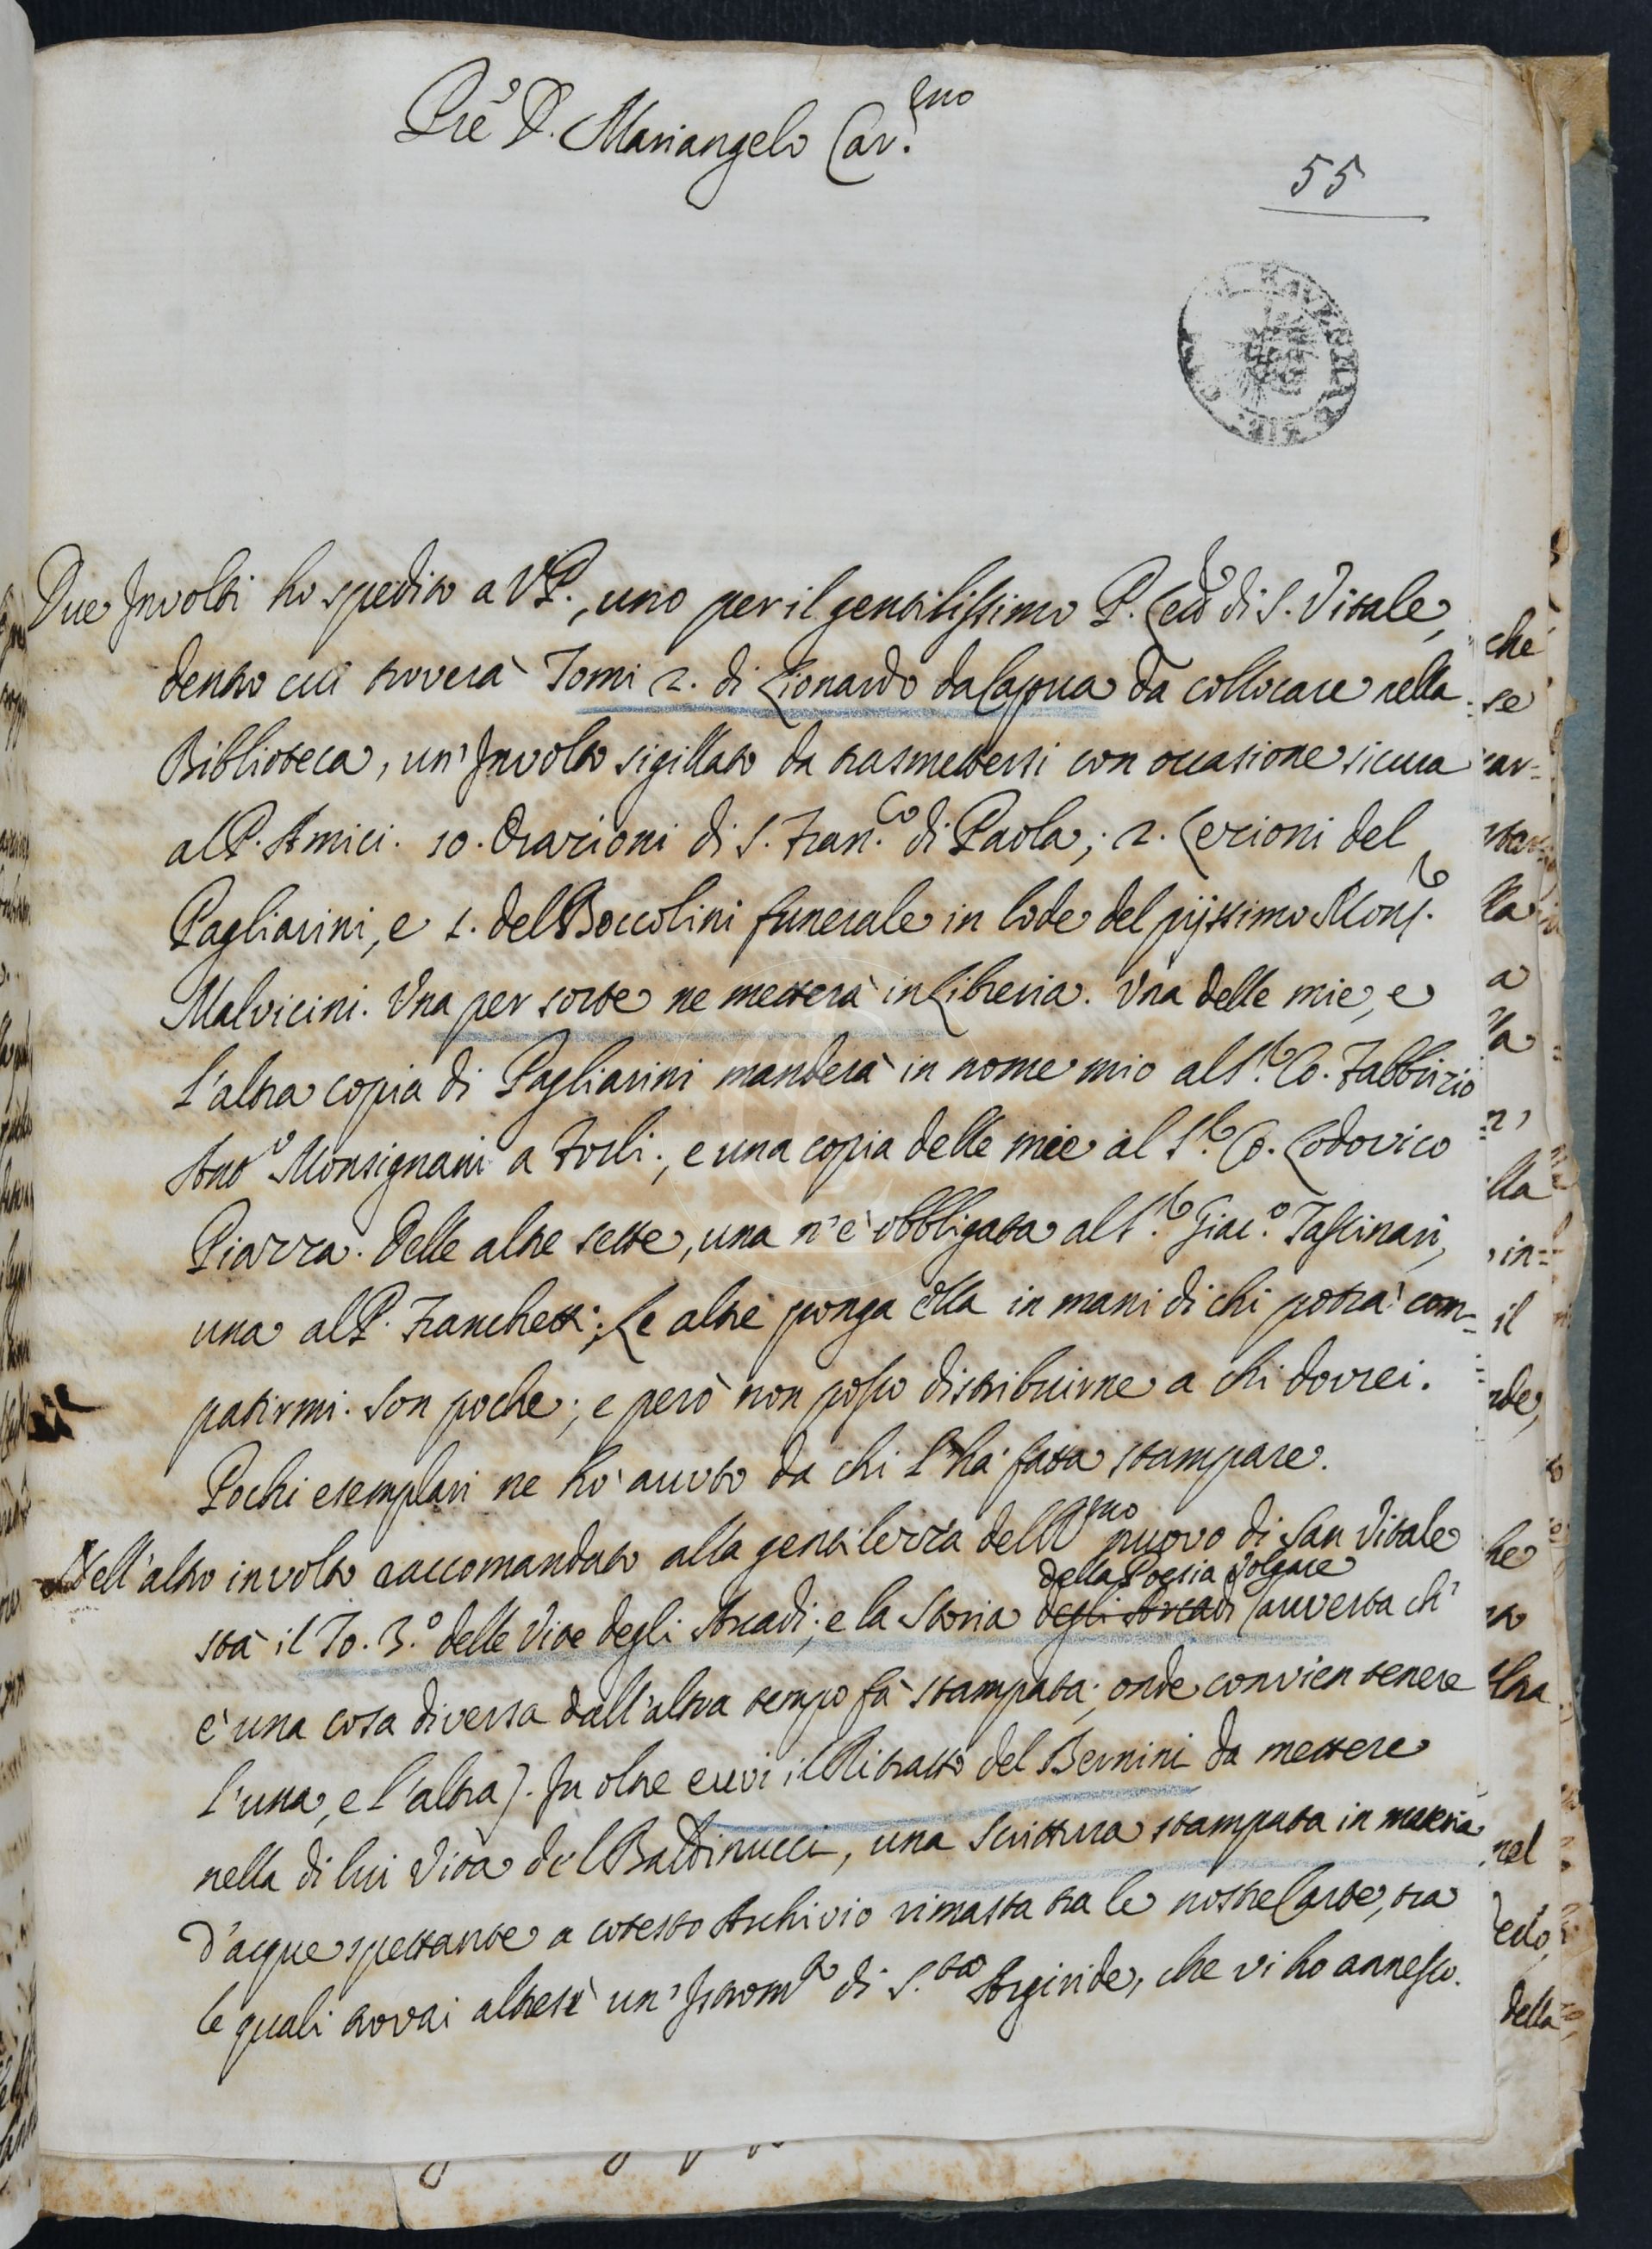 Pre D. Mariangelo Car.mo
55
Due Involti ho spedito a VP., uno per il gentilissimo P. Led di S. Vitale,
dentro cui troverà Tomi 2. di Lionardo da Capua da collocare nella
Biblioteca, un' Involto sigillato da trasmettersi con occasione sicura
al P. Amici. 10. Orazioni di S. Fran.co di Paola; 2. Lezioni del
Pagliarini, e 1. del Boccolini funerale in lode del pijssimo Mons.r
Malvicini. Una per sorte ne metterà in Libreria. Una delle mie, e
l'altra copia di Pagliarini manderà in nome mio al S.r Co. Fabbrizio
Anto Monsignani a Forlì; e una copia delle mie al S.r Co. Lodovico
Piazza. Delle altre sette, una n'è obbligata al S.r Giac.o Tassinari,
una al P. Franchetti; Le altre ponga ella in mani di chi potrà com=
patirmi. Son poche; e però non posso distribuirne a chi dovrei.
Pochi esemplari ne ho avuto da chi l'ha fatta stampare.
Nell'altro involto raccomandato alla gentilezza dell' nuovo di San Vitale
della Poesia Volgare
sta il To. 3.o delle Vite degli Arcadi; e la Storia degli Arcadi (avverta ch'
è una cosa diversa dall'altra tempo fa stampata; onde convien tenere
l'una, e l'altra). In oltre evvi il Ritratto del Bernini da mettere
nella di lui Vita del Baldinucci, una Scrittura stampata in materia
d'acque spettante a cotesto Archivio rimasta tra le nostre Carte, tra
le quali trovai altresì un' Istrom.o di S.ta Argiride, che vi ho annesso.
che
se
car=
lla
a
lla
in=
il
nel
della